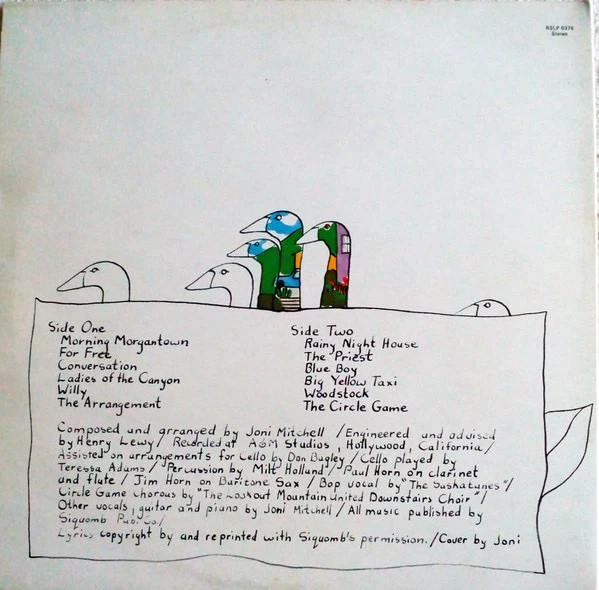 RSLP 6376
Stereo
Side One
Morning Morgantown
For Free
Conversation
Ladies of the Canyon
Willy
The Arrangement
Side Two
Rainy Night House
The Priest
Blue Boy
Big Yellow Taxi
Woodstock
The Circle Game
Composed and arranged by Joni Mitchell / Engineered and advised
by Henry Lewy / Recorded at A&M Studios, Hollywood, California /
Assisted on arrangements for Cello by Don Bagley / Cello played by
Teressa Adams / Percussion by Milt Holland / Paul Horn on clarinet
and flute / Jim Horn on Baritone Sax / Bop vocal by "The Saskatunes" /
Circle Game chorous by "The Lookout Mountain United Downstairs Choir" /
Other vocals, guitar and piano by Joni Mitchell / All music published by
Siquomb Pub. Co/
Lyrics copyright by and reprinted with Siquomb's permission. / Cover by Joni